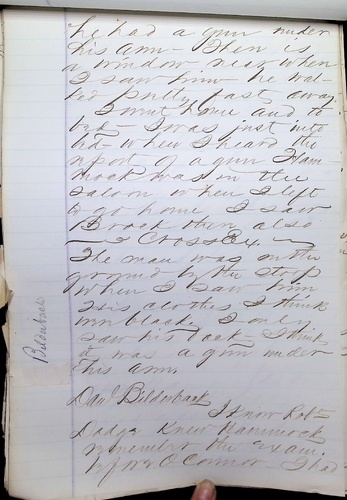 he had a gun under
his arm - There is
a window near where
I saw him - he wal-
ked pretty fast away
I went home and to
bed - I was just into
bed - when I heard the
report of a gun Ham-
mock was in the
saloon when I left
to go home I saw
Brook then also
Cross Ex.
The man was on the
ground by the stoop
when I saw him
His clothes I think
were black. I only
saw his back - I think
it was a gun under
his arm.
Bilderback
Danl Bilderback
I know Robt
Knew Hammock
remember the exam.
before O'Connor - I had